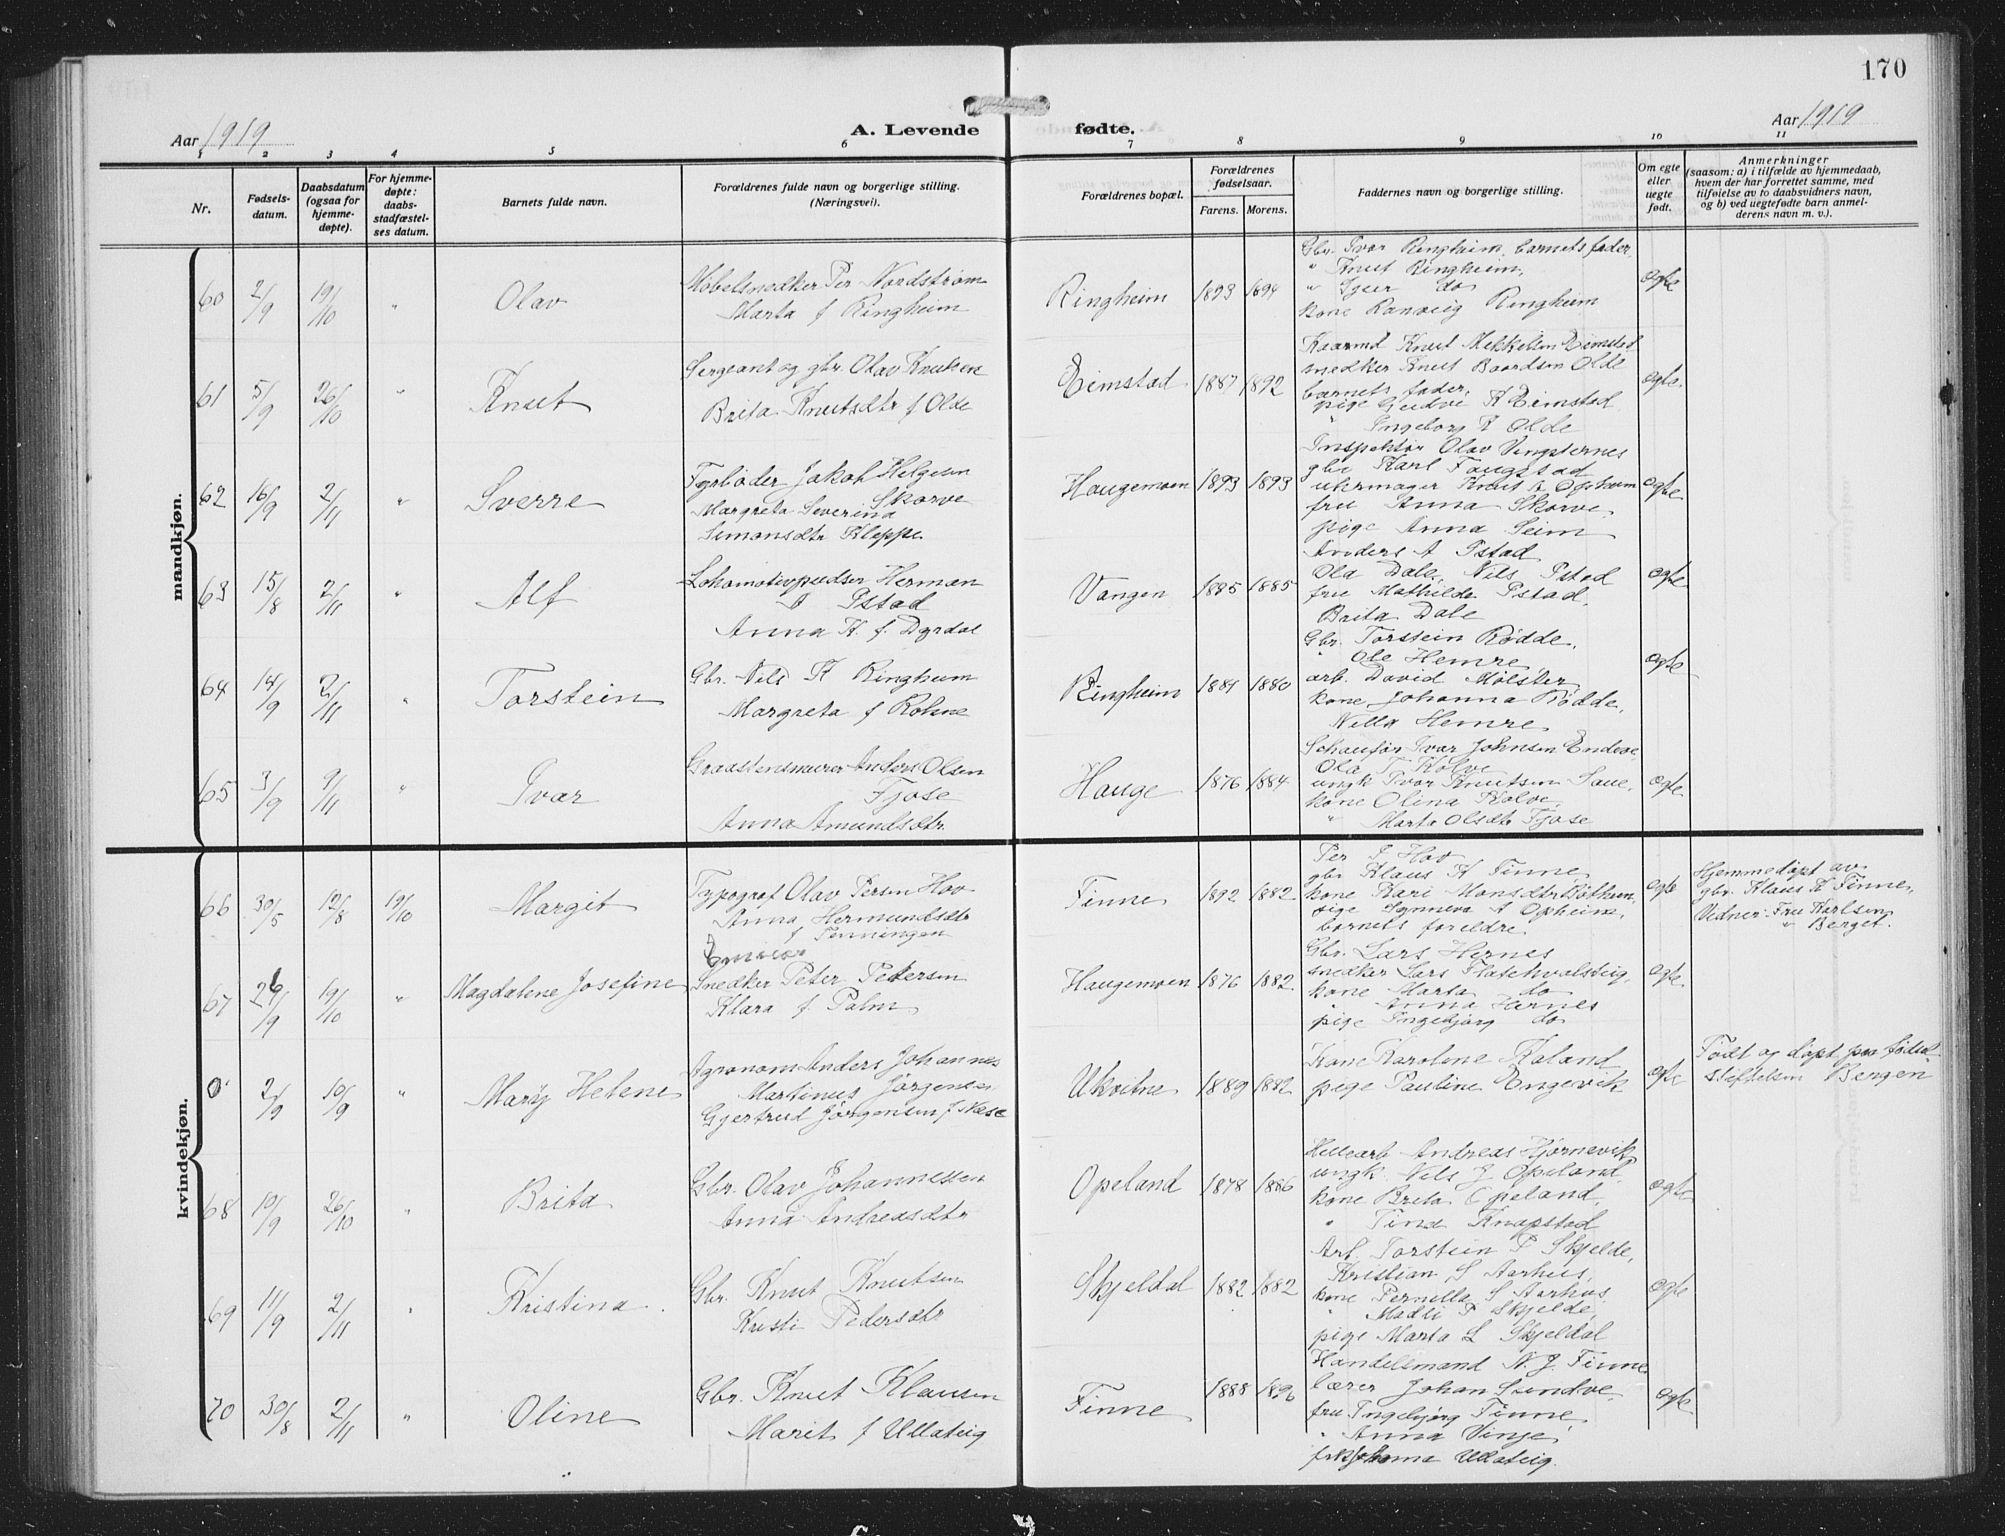 170
Aar 1919
A. Levende fødte.
Aar 1919
1 2 3 4 5 6 7 8 9 10 11
Nr.
Fødsels-
datum.
Daabsdatum
(ogsaa for
hjemme-
døpte).
For hjemme-
døpte:
daabs-
stadfæstel-
ses datum.
Barnets fulde navn.
Forældrenes fulde navn og borgerlige stilling.
(Næringsvei).
Forældrenes bopæl.
Forældrenes
fødselsaar.
Farens. Morens.
Faddernes navn og borgerlige stilling.
Om egte
eller
uegte
født.
Anmerkninger
(saasom: a) i tilfælde av hjemmedaab,
hvem der har forrettet samme, med
tilføielse av to daabsvidners navn,
og b) ved uegtefødte barn anmel-
derens navn m. v.).
mandkjøn.
60 2/9 19/10 " Olav
Møbelsnedker Per Nordstrøm
Marta f Ringheim
Ringheim 1893 1894
Gbr. Ivar Ringheim, barnets fader,
" Knut Ringheim,
" do
kone Ranveig Ringheim
egte
61 5/9 26/10 " Knut
Sergeant og gbr. Olav Knutsen
Brita Knutsdtr f Olde
Eimstad 1887 1892
Kaarmd Knut Mikkelsen Eimstad
snedker Knut Baardsen Olde
barnets fader,
pige Gudve K Eimstad
" Ingeborg K Olde
egte
62 16/9 2/11 " Sverre
Fyrbøder Jakob Helgesen
Skorve
Margreta Severina
Simonsdtr Kleppe.
Haugemoen 1893 1893
Inspektør Olav Vingsternes
gbr Karl Faugstad
uhrmager Knut K Opheim
fru Anna Skorve,
pige Anna Seim
egte
63 15/8 2/11 " Alf
Lokomotivpudser Herman
Istad
Anna K. f. Dyrdal
Vangen 1885 1885
Anders A Istad
Ola Dale, Nils Istad
fru Mathilde Istad,
Brita Dale
egte
64 14/9 2/11 " Torstein
Gbr. Nils K Ringheim
Margreta f Rokne
Ringheim 1881 1880
Gbr. Torstein Rødde,
" Ole Hemre,
arb. David Mølster,
kone Johanna Rødde,
Nilla Hemre
egte
65 3/9 9/11 " Ivar
Graastensmurer Anders Olsen
Fjose
Anna Amundsdtr.
Hauge 1876 1884
Schaufør Ivar Johnsen Endeve
Ola T Kolve
ungk Ivar Knutsen Saue,
kone Olina Kolve,
" Marta Olsdtr Fjose
egte
kvindekjøn.
66 30/5 12/8 19/10 Margit
Typograf Olav Persen Hov
Anna Hermundsdtr
f Tenningen
Finne 1892 1882
Per J Hov
gbr Klaus K Finne,
kone Kari Monsdtr Bøthun,
pige Synneva A Opheim,
barnets foreldre
egte
Hjemmedøpt av
gbr. Klaus K Finne,
Vidner: Fru Karlsen
" Berget.
67 26/9 19/10 " Magdalene Josefine
Snedker Peter Petersen
Klara f. Palm
Haugemoen 1876 1882
Gbr. Lars Hernes
snedker Lars Flatekvalsteig,
kone Marta do
" Anna Hernes
pige Ingebjørg do
egte
0 2/9 10/9 " Mary Helene
Agronom Anders Johannes
Martinus Jørgensen
Gjertrud Jørgensen f Næse
Ukvitne 1889 1882
Kone Karoline Kaland
pige Pauline Engevik
egte
Født og døpt paa fødsel-
stiftelsen Bergen
68 10/9 26/10 " Brita
Gbr. Olav Johannessen
Anna Andreasdtr
Opeland 1878 1886
Hellearb Andreas Hjørnevik
ungk. Nils J Opeland,
kone Brita Opeland,
" Tina Knapstad
egte
69 11/9 2/11 " Kristina.
Gbr. Knut Knutsen
Kristi Pedersdtr
Skjeldal 1882 1882
Arb. Torstein P Skjelde,
Kristian S Aarhus,
kone Pernella S Aarhus
" Madli P Skjelde,
pige Marta L Skjeldal
egte
70 30/8 2/11 " Oline
Gbr. Knut Klausen
Marit f Ullateig
Finne 1888 1896
Handelsmand N. J. Finne
lærer Johan Sundve,
fru Ingebjørg Finne
" Anna Vinje,
Johanna Ullateig.
egte